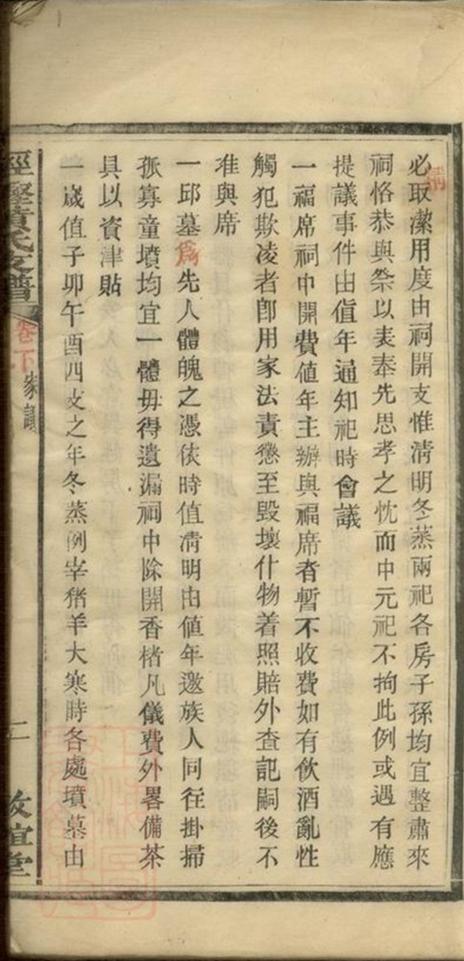 必取潔用度由祠開支惟清明冬蒸兩祀各房子孫均宜整肅來
祠恪恭與祭以表奉先思孝之忱而中元祀不拘此例或遇有應
提議事件由值年通知祀時會議
一福席祠中開費值年主辦與福席者暫不收費如有飲酒亂性
觸犯欺凌者卽用家法責懲至毀壞什物着照賠外查記嗣後不
准與席
一邱墓為先人體魄之憑依時值清明由値年邀族人同往掛掃
孤寡童墳均宜一體毋得遺漏祠中除開香楮凡儀費外畧備茶
具以資津貼
一歲值子卯午酉四支之年冬蒸例宰猪羊大寒時各處墳墓由
黃氏支譜
卷下
二
敦誼堂
清